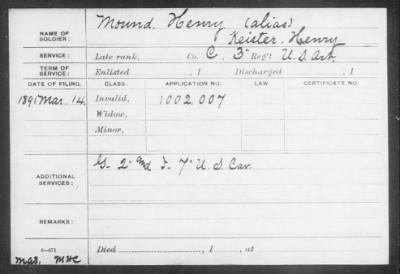 Mound, Henry (alias)
NAME OF SOLDIER:
Keister, Henry
SERVICE: Late rank, Co. C, 3" Reg't U.S. Art.
TERM OF SERVICE: Enlisted , 1 Discharged , 1
DATE OF FILING. CLASS. APPLICATION NO. LAW. CERTIFICATE NO.
1891 Mar. 14. Invalid, 1002.007
Widow,
Minor,
G. 2" Md. I- 7" U.S. Cav.
ADDITIONAL SERVICES:
REMARKS:
Died , 1 , at